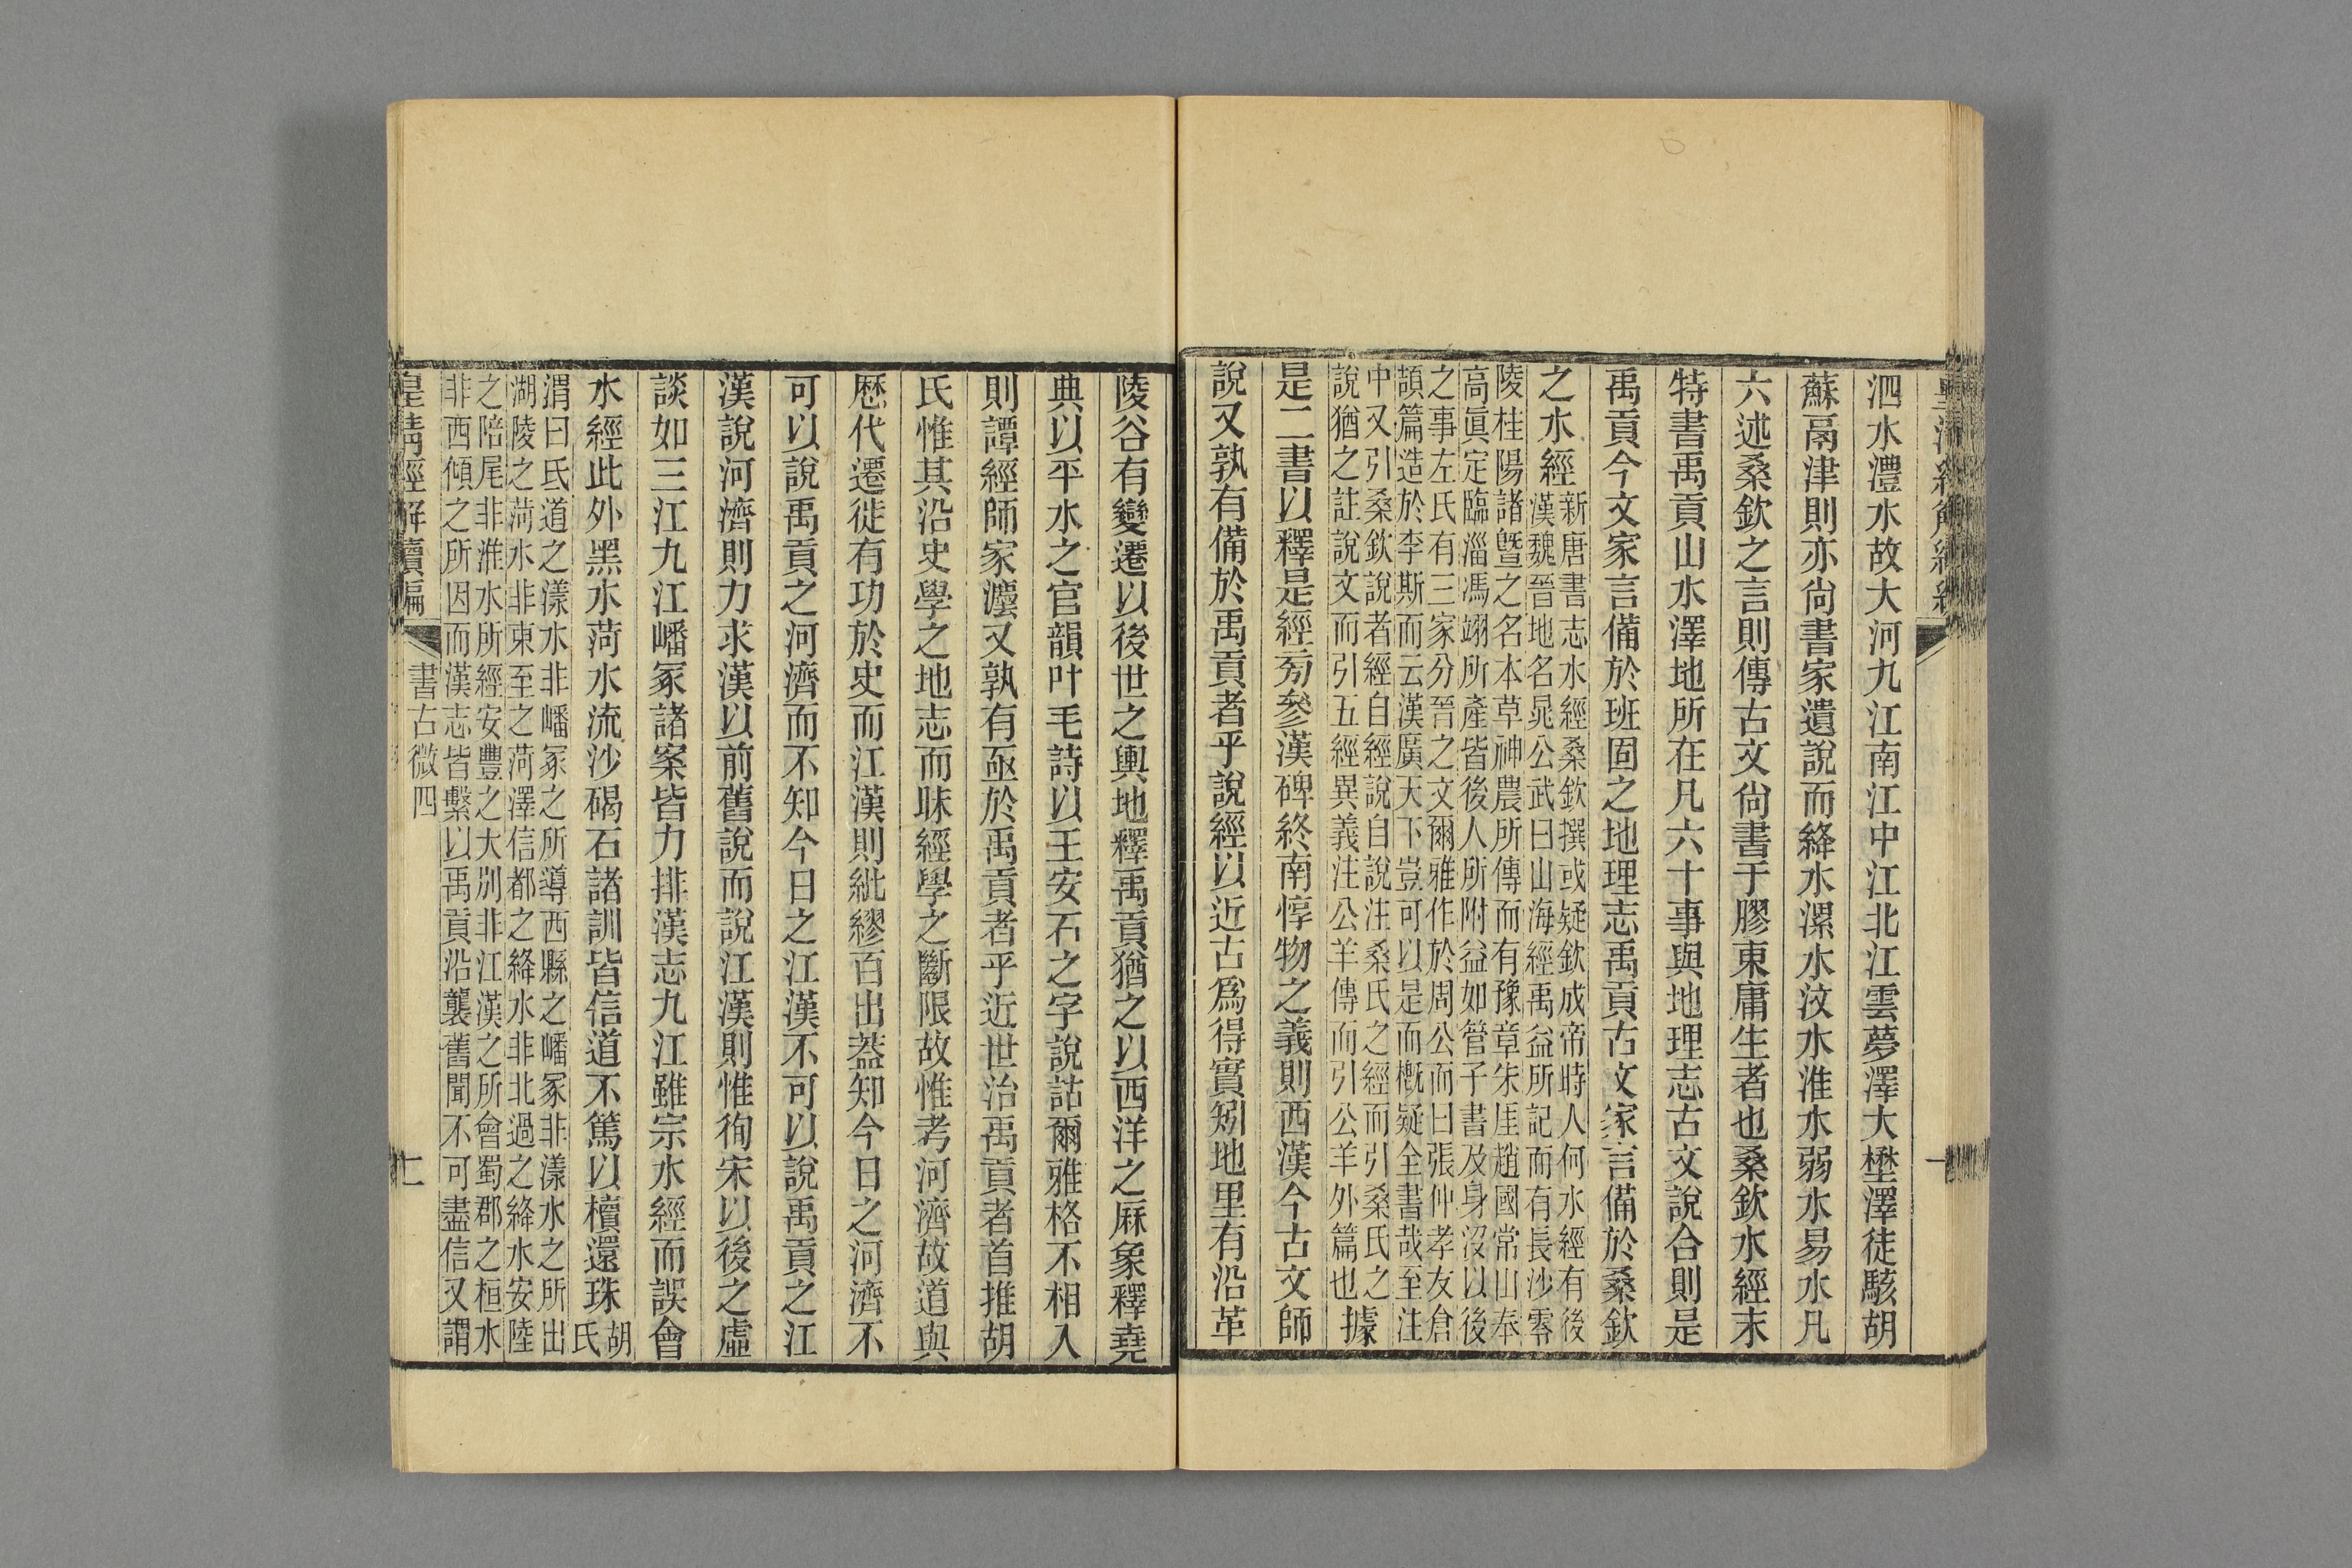 泗水澧水故大河九江南江中江北江雲夢澤大壄澤徒駭胡
蘇鬲津則亦尙書家遺說而絳水漯水汶水淮水弱水易水凡
六述桑欽之言則傳古文尙書于膠東庸生者也桑欽水經末
特書禹貢山水澤地所在凡六十事與地理志古文說合則是
禹貢今文家言備於班固之地理志禹貢古文家言備於桑欽
之水經
新唐書志水經桑欽撰或疑欽成帝時人何水經有後
漢魏晉地名晁公武曰山海經禹益所記而有長沙零
陵桂陽諸曁之名本草神農所傳而有豫章朱厓趙國常山奉
高眞定臨淄馮翊所產皆後人所附益如管子書及身沒以後
之事左氏有三家分晉之文爾雅作於周公而曰張仲孝友倉
頡篇造於李斯而云漢廣天下豈可以是而槪疑全書哉至注
中又引桑欽說者經自經說自說注桑氏之經而引桑氏之
說猶之註說文而引五經異義注公羊傳而引公羊外篇也
據
是二書以釋是經㫄參漢碑終南惇物之義則西漢今古文師
說又孰有備於禹貢者乎說經以近古爲得實矧地里有沿革
陵谷有變遷以後世之輿地釋禹貢猶之以西洋之厤象釋堯
典以平水之官韻叶毛詩以王安石之字說詁爾雅格不相入
則譚經師家灋又孰有亟於禹貢者乎近世治禹貢者首推胡
氏惟其沿史學之地志而昧經學之斷限故惟考河濟故道與
歷代遷徙有功於史而江漢則紕繆百出葢知今日之河濟不
可以說禹貢之河濟而不知今日之江漢不可以說禹貢之江
漢說河濟則力求漢以前舊說而說江漢則惟徇宋以後之虛
談如三江九江嶓冢諸案皆力排漢志九江雖宗水經而誤會
水經此外黑水菏水流沙碣石諸訓皆信道不篤以櫝還珠
胡
氏
渭曰氐道之漾水非嶓冢之所導西縣之嶓冢非漾水之所出
湖陵之菏水非東至之菏澤信都之絳水非北過之絳水安陸
之陪尾非淮水所經安豐之大別非江漢之所會蜀郡之桓水
非西傾之所因而漢志皆繫以禹貢沿襲舊聞不可盡信又謂
皇淸經解續編
書古微四
七